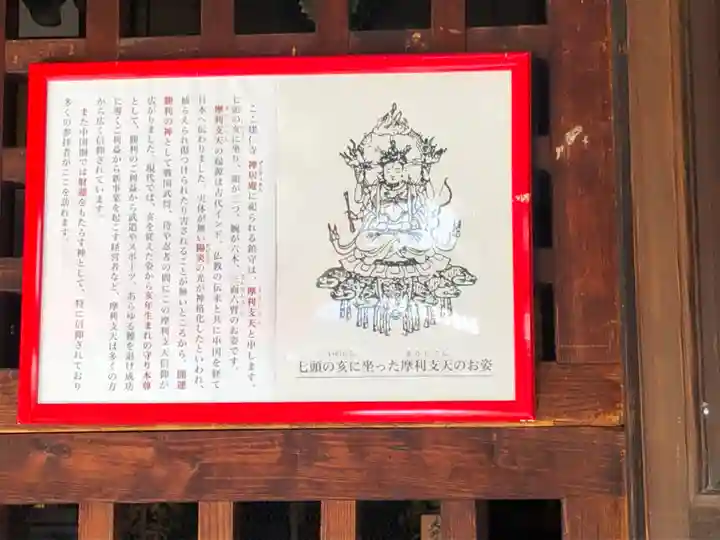 ここ建仁寺 禅居庵に祀られる鎮守は、摩利支天と申します。
七頭の亥に坐り、頭が三つ、腕が六本、三面六臂のお姿です。
摩利支天の起源は古代インド。仏教の伝来と共に中国を経て
日本へ伝わりました。実体が無い陽炎の光が神格化したといわれ、
捕らえられ傷つけられたり害されることが無いところから、開運
勝利の神として戦国武将、侍や忍者の間にこの摩利支天信仰が
広がりました。現代では、亥を従えた姿から亥年生まれの守り本尊
として、勝利のご利益から武道やスポーツ、あらゆる難を退け成功
に導くご利益から新事業を起こす経営者など、摩利支天は多くの方
から広く信仰されています。
また中国圏では財運をもたらす神として、特に信仰されており
多くの参拝者がここを訪れます。
七頭の亥に坐った摩利支天のお姿